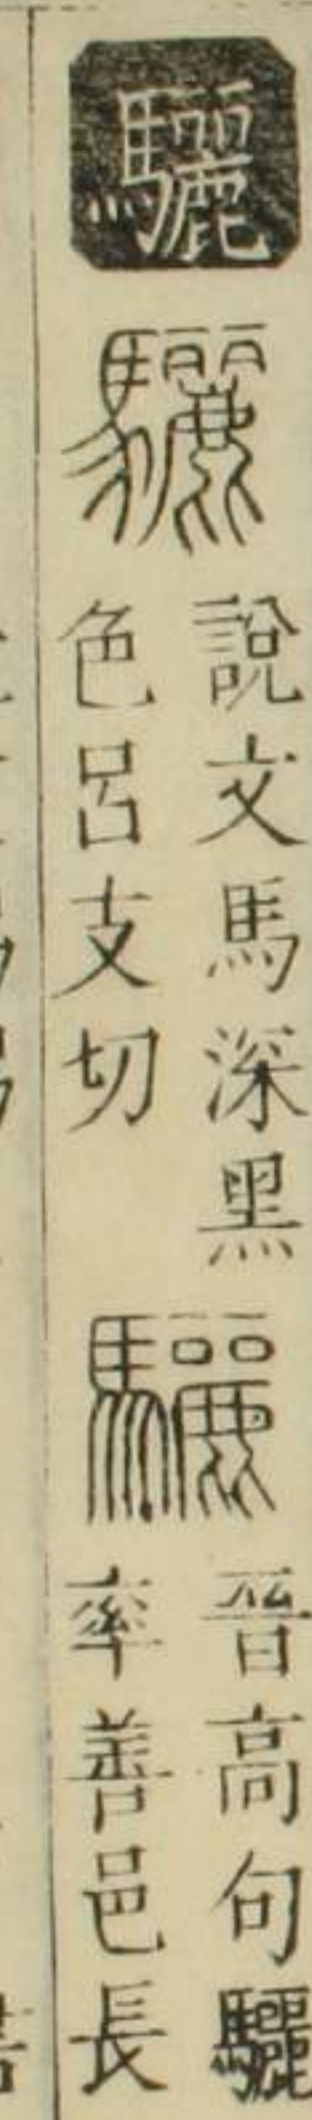 驪
驪
說文馬深黑
色呂支切
驪
晉高句驪
率善邑長